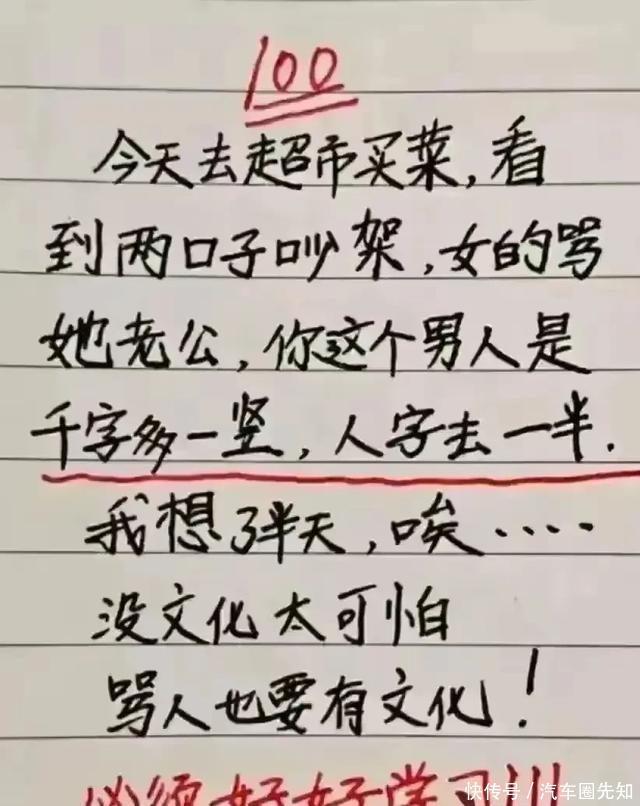 100
今天去超市买菜,看
到两口子吵架,女的骂
她老公,你这个男人是
千字多一竖,人字去一半.
我想了半天,唉·····
没文化太可怕
骂人也要有文化!
必须好好学习!!!
快传号/汽车圈先知